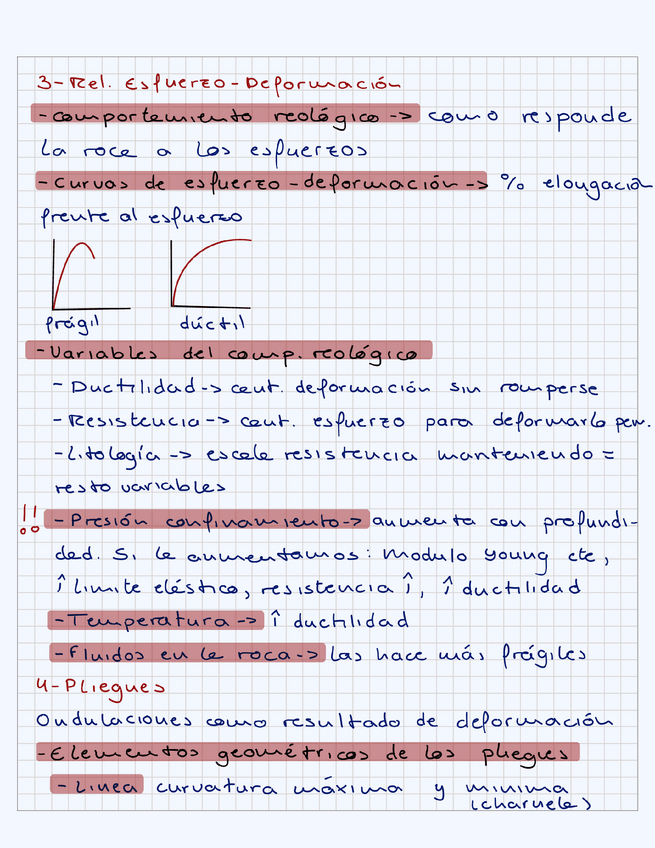 3-Rel. Esfuerzo-Deformación
-comportamiento reológico -> como responde
la roca a los esfuerzos
-Curvas de esfuerzo-deformación-> % elongación
frente al esfuerzo
frágil dúctil
-Variables del comp. reológico
- Ductilidad-> cant. deformación sin romperse
-Resistencia-> cant. esfuerzo para deformarlo perm.
-Litología -> escala resistencia manteniendo =
resto variables
!! -Presión confinamiento-> aumenta con profundi-
dad. Si la aumentamos: modulo young cte,
↑ limite elástico, resistencia ↑, ↑ ductilidad
-Temperatura -> ↑ ductilidad
-Fluidos en la roca-> las hace más frágiles
4-Pliegues
Ondulaciones como resultado de deformación
-Elementos geométricos de los pliegues
-Linea curvatura máxima y minima
(charnela)